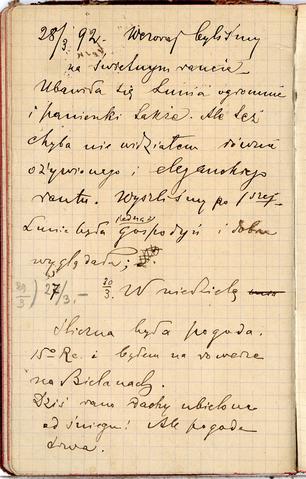 28/3. 92. Wczoraj byliśmy
na świetnym raucie
Ubawiła się Lunia ogromnie
i panienki także. Ale też
chyba nie widziałem równie
ożywionego i eleganckiego
rautu. Wyszliśmy po
Lunia była jedną z gospodyń i dobrze
wyglądała;
29/3) 27/3. – 20/3. W niedzielę
Śliczna była pogoda.
15° Re. i byłem na rowerze
na Bielanach.
Dziś rano dachy ubielone
od śniegu! Ale pogoda